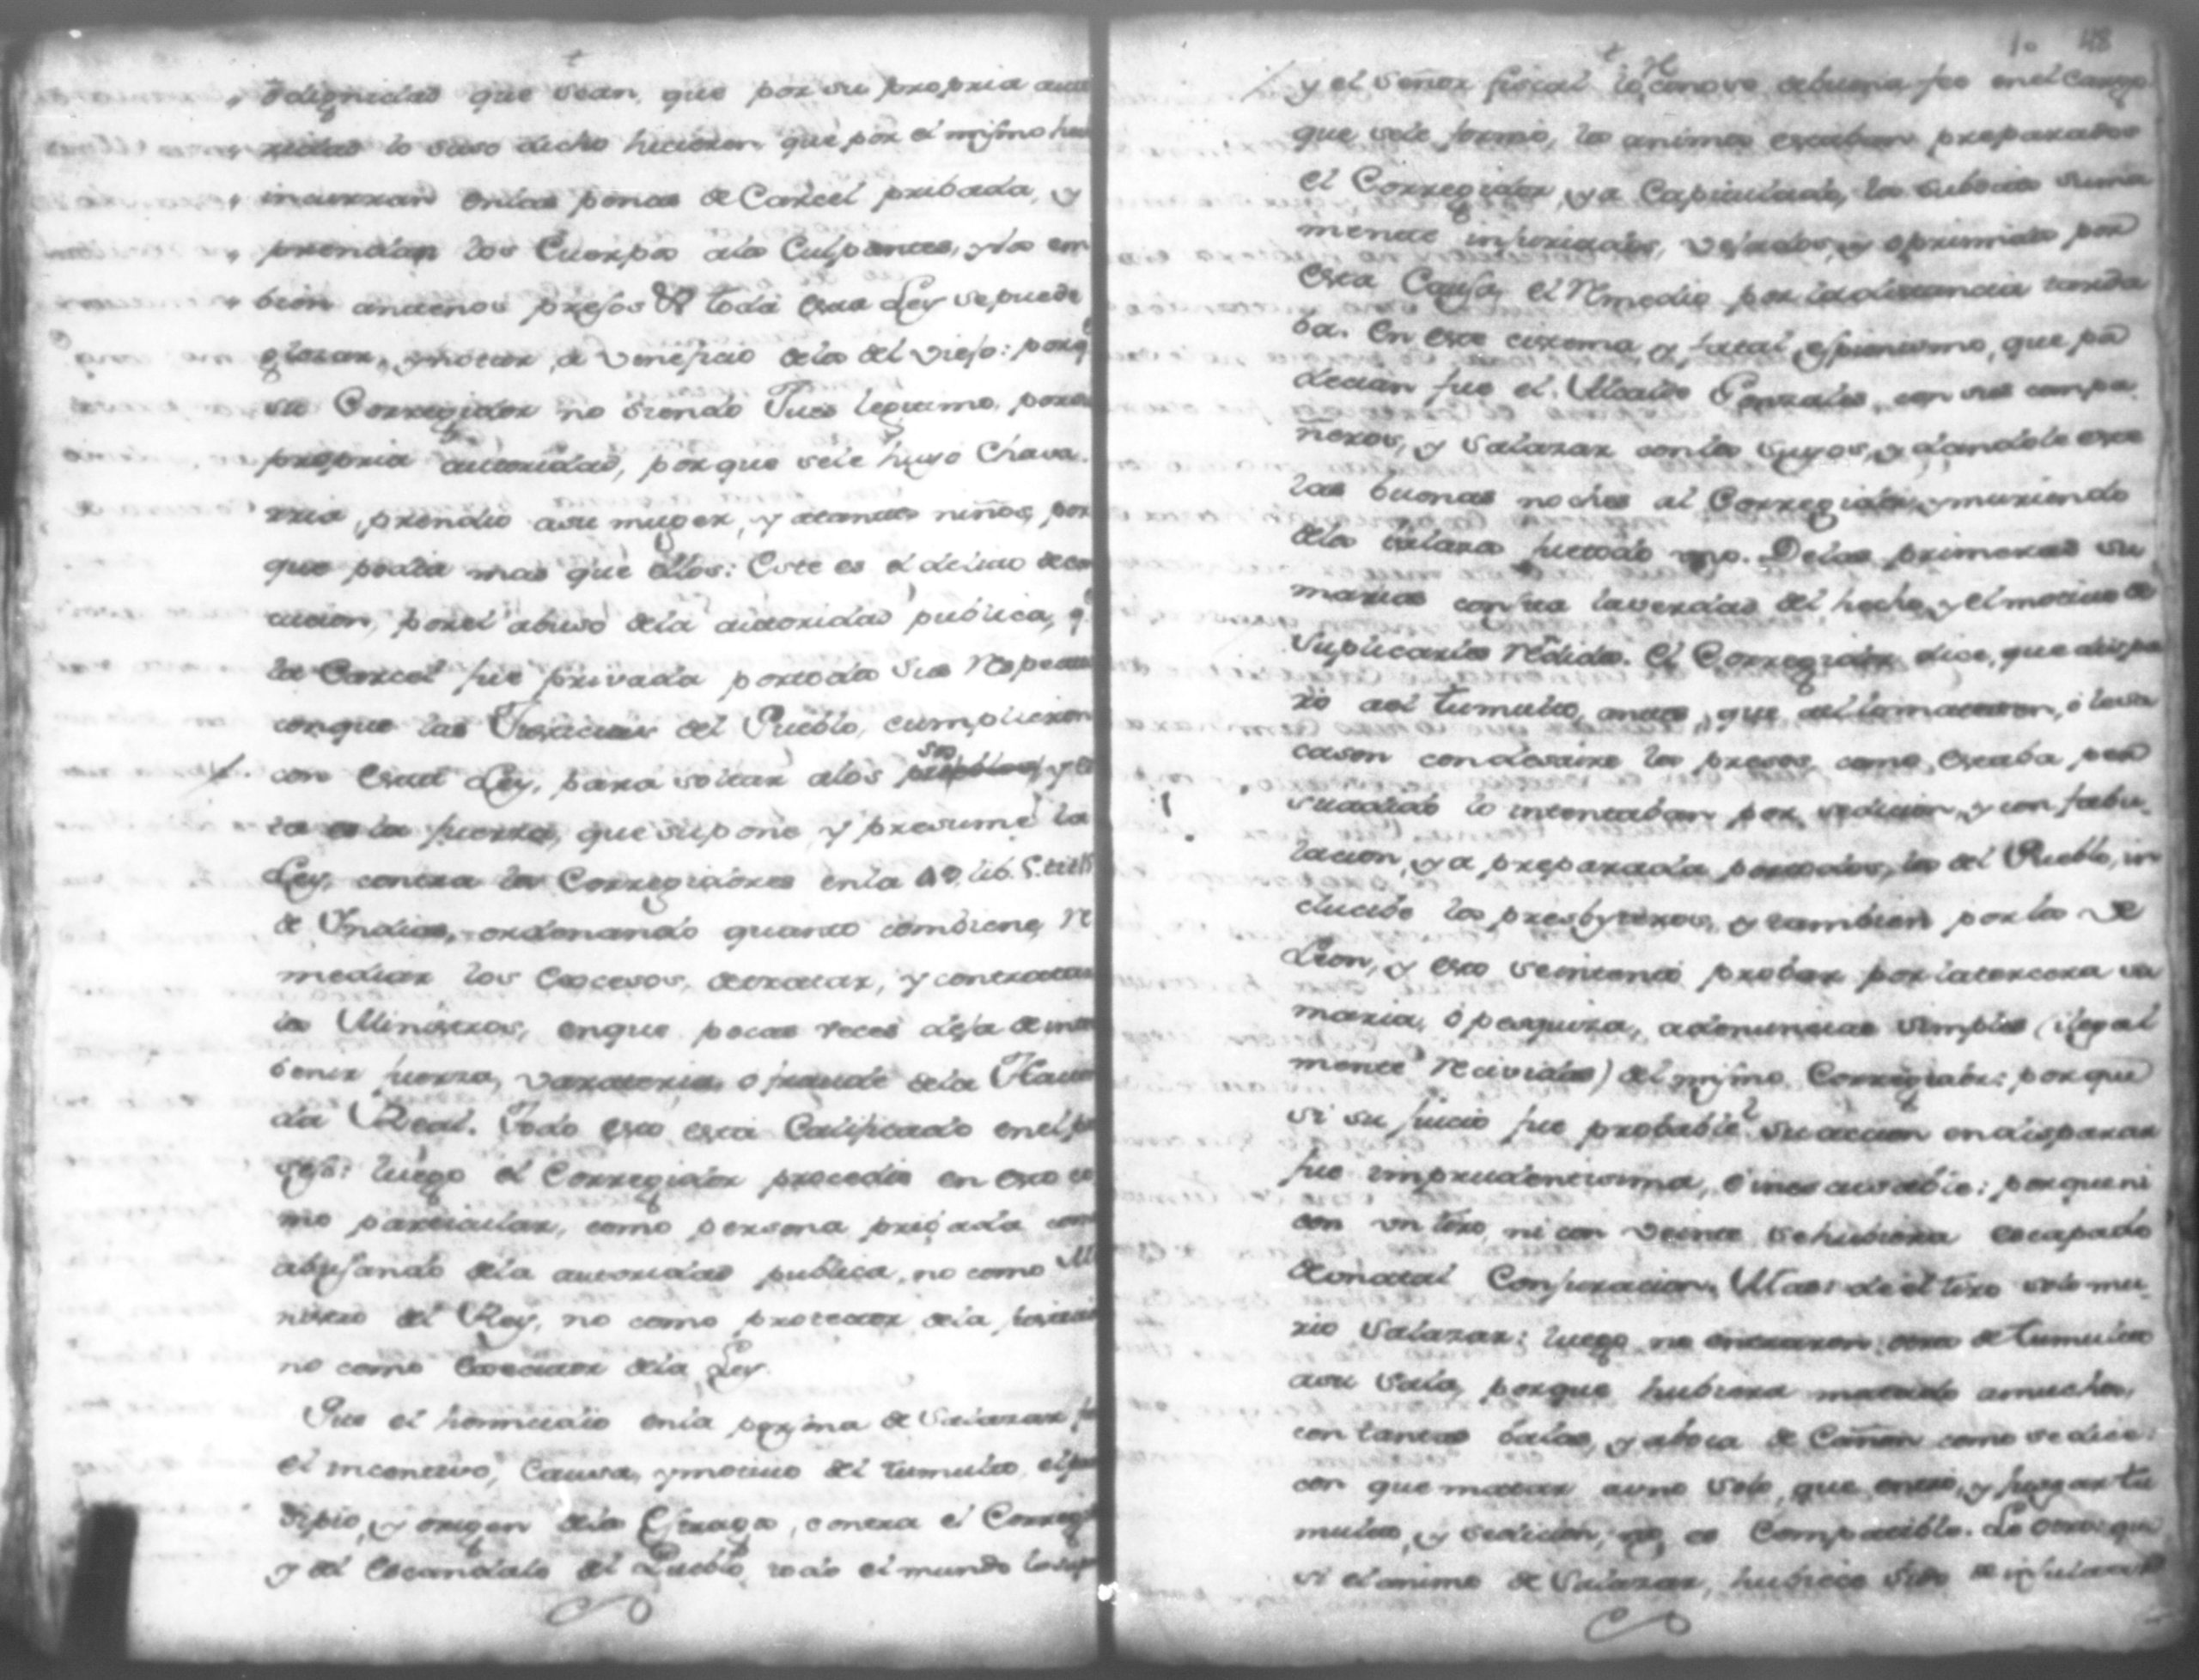 ò dignidad que sean, que por su propria auto
ridad lo suso dicho hicieren, que por el mismo hec
incurran en las penas de Carcel pribada, y
prendan los Cuerpos a los Culpantes, y los em
bien antenos presos &ª toda esta Ley se puede
glosar, y notar, a veneficio de los del viejo: porq.
su Corregidor no siendo Juez legitimo, por su
propria autoridad, porque se le huyo Chava
rria, prendio a su muger, y a tantos niños, por
que podia mas que ellos: Este es el delito de
cucion, por el abuso de la autoridad publica, q.
la Carcel fue privada por todos sus respectos
conque las Justicias del Pueblo, cumplieron
con esta Ley, para soltar a los
ta es la fuerza, que supone, y presume la
Ley, contra los Corregidores en la 49. lib. 5. tit.
de Indias, ordenando quanto combiene, re
mediar los excesos, de tratar, y contratar
los Ministros, en que pocas veces deja de inter
benir fuerza, varateria, o fraude de la Hacien
da Real. Todo esto esta Calificado en el pro
ceso: luego el Corregidor procedia en esto co
mo particular, como persona privada como
abusando de la autoridad publica, no como Mi
nistro del Rey, no como protector de la justicia
no como Executor de la Ley.
Que el homicidio en la persona de Salazar fue
el incentivo, Causa, y motivo del tumulto, el prin
cipio, y origen de los Estragos, contra el Corregidor
y del Escandalo del Pueblo, todo el mundo lo supo
1o 48
y el Señor fiscal lo reconoce de buena fee en el Cargo
que se le formo, los animos estaban preparados
el Corregidor, ya Capitulado, los subditos suma
mente injuriados, vejados, y oprimidos por
esta Causa, el remedio por la distancia tarda
ba. En este extremo, y fatal que pa
decian fue el Alcalde Gonzales, con sus compa
ñeros, y Salazar con los suyos, y dandole este
las buenas noches al Corregidor, y muriendo
de la fue todo uno. De las primeras su
marias consta la verdad del hecho, y el motivo de
suplicarlo rendido. El Corregidor dice, que dispa
ro al tumulto, antes, que allí lo matasen, o le sa
casen con desaire los presos, como estaba per
suadido lo intentaban por sedicion, y confabu-
lacion, ya preparada por todos los del Pueblo, in
clucibe los presbyteros, y tambien por los de
Leon, y esto se intentó probar por la tercera su
maria, ó pesquiza, a denuncias simples (ilegal
mente recividas) del mismo Corregidor: porque
si su juicio fue probable su accion en disparar
fue imprudentisima, é inescusable: porque ni
con un tiro, ni con veinte se hubiera escapado
de una tal Conjuracion. Mas: de el tiro solo mu-
rio Salazar: luego no entraron otra de tumulto
a su Sala, porque hubiera matado a muchos,
con tantas balas, y a boca de Cañon como se dice:
con que matar a uno solo, que entró, y juzgar tu
multo, y sedicion, no es Compatible. Lo otro: que
si el animo de Salazar, hubiese sido de insultar